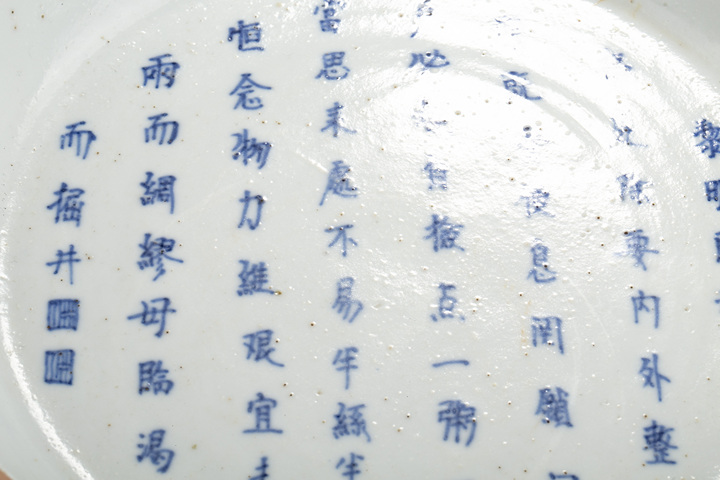 黎明
除要内外整
既便息関鎖
必自檢点一粥
當思来處不易半絲半
恒念物力維艰宜
雨而綢繆毋臨渴
而掘井